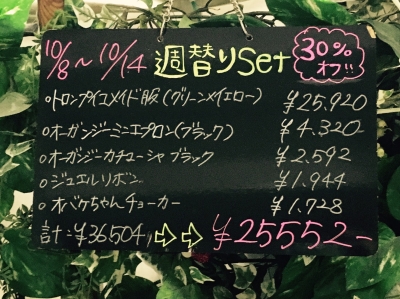 10/8~10/14 週替りSet 30%オフ!!
○トロンプイユメイド服(グリーン×イエロー) ¥25.920
○オーガンジーミニエプロン(ブラック) ¥4.320
○オーガンジーカチューシャブラック ¥2.592
○ジュエルリボン ¥1.944
○オバケちゃんチョーカー ¥1.728
計:¥36504,⇨⇨¥25552-